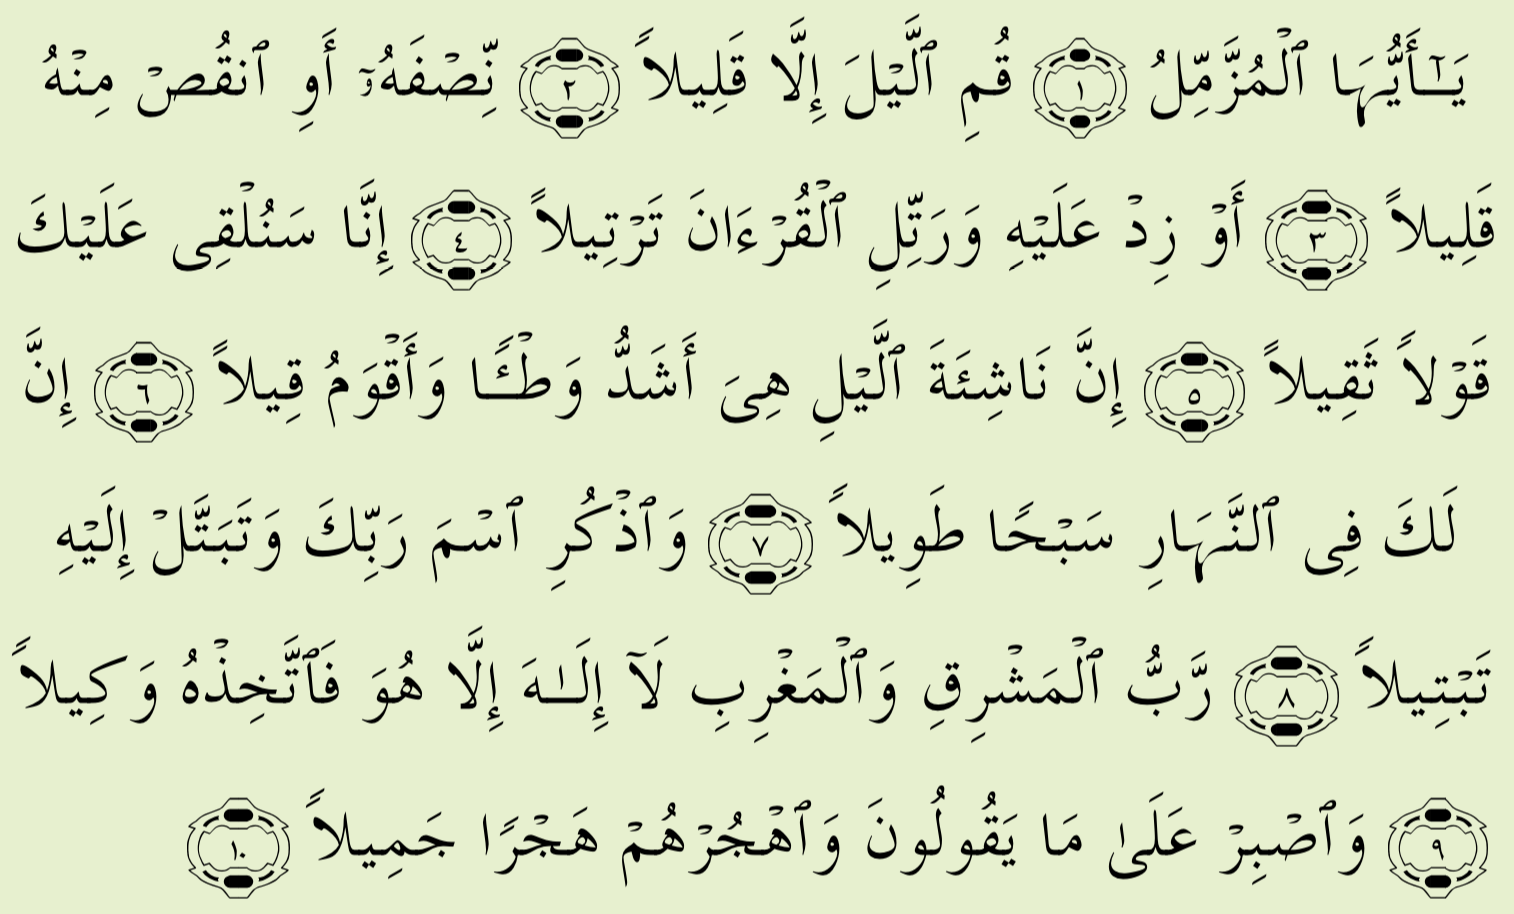 يَـٰٓأَيُّهَا ٱلْمُزَّمِّلُ ١ قُمِ ٱلَّيْلَ إِلَّا قَلِيلاً ٢ نِّصْفَهُۥٓ أَوِ ٱنقُصْ مِنْهُ
قَلِيلاً ٣ أَوْ زِدْ عَلَيْهِ وَرَتِّلِ ٱلْقُرْءَانَ تَرْتِيلاً ٤ إِنَّا سَنُلْقِى عَلَيْكَ
قَوْلاً ثَقِيلاً ٥ إِنَّ نَاشِئَةَ ٱلَّيْلِ هِىَ أَشَدُّ وَطْـًٔا وَأَقْوَمُ قِيلاً ٦ إِنَّ
لَكَ فِى ٱلنَّهَارِ سَبْحًا طَوِيلاً ٧ وَٱذْكُرِ ٱسْمَ رَبِّكَ وَتَبَتَّلْ إِلَيْهِ
تَبْتِيلاً ٨ رَّبُّ ٱلْمَشْرِقِ وَٱلْمَغْرِبِ لَآ إِلَـٰهَ إِلَّا هُوَ فَٱتَّخِذْهُ وَكِيلاً
٩ وَٱصْبِرْ عَلَىٰ مَا يَقُولُونَ وَٱهْجُرْهُمْ هَجْرًا جَمِيلاً ١٠